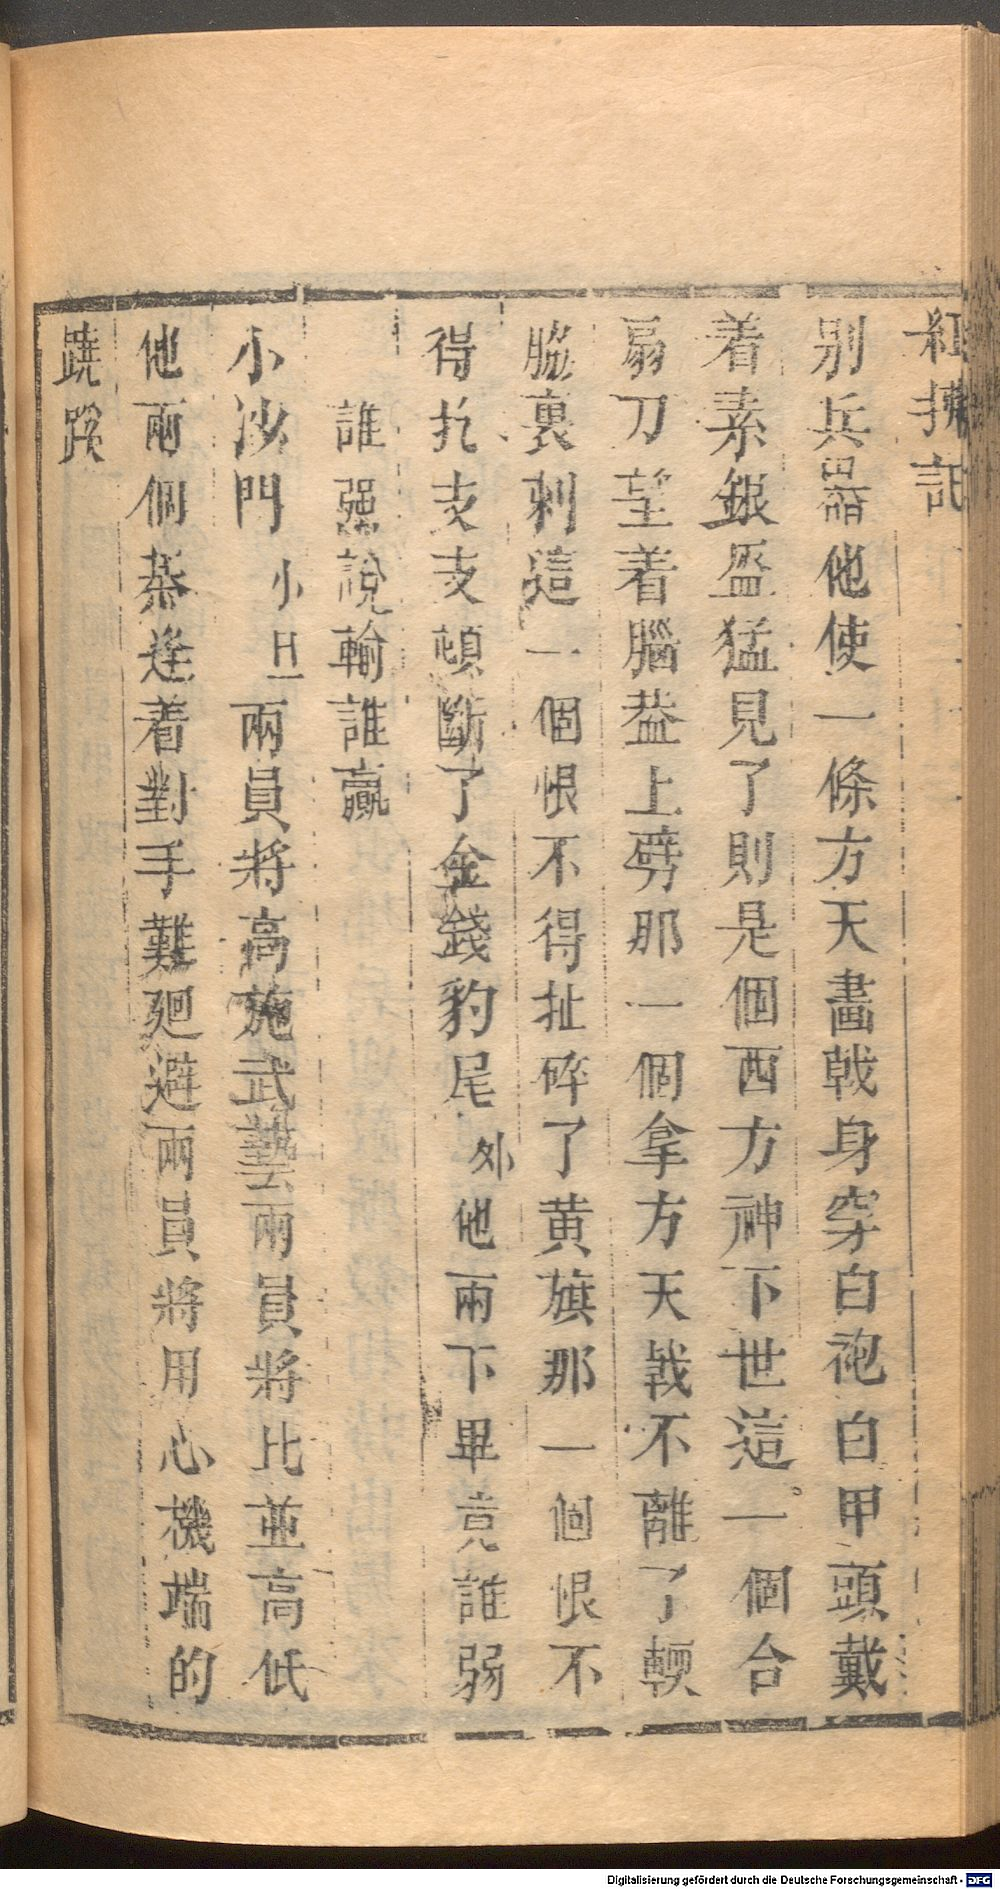 紅拂記
別兵器他使一條方天畫戟身穿白袍白甲頭戴
着素銀盔猛見了則是個西方神下世這一個合
扇刀望着腦葢上劈那一個拿方天戟不離了輭
脇裏刺這一個恨不得扯碎了黄旗那一個恨不
得扎支支頓斷了金錢豹尾外他兩下畢竟誰弱
誰强說輸誰贏
小沙門小旦兩員將高施武藝兩員將比並高低
他兩個恭逢着對手難廻避兩員將用心機端的
蹺蹊
Digitalisierung gefördert durch die Deutsche Forschungsgemeinschaft - DFG